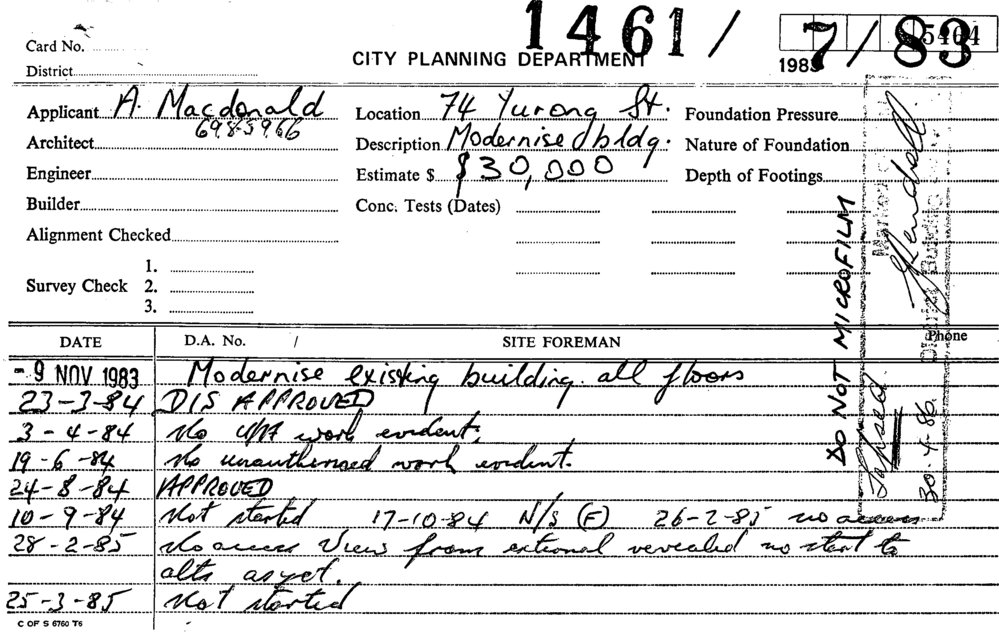 1461/7/83
5464
Card No.
District
CITY PLANNING DEPARTMENT
1983
Applicant A. Macdonald
6983966
Location 74 Yurong St.
Foundation Pressure
Architect
Description Modernise bldg.
Nature of Foundation
Engineer
Estimate $ $30,000
Depth of Footings
Builder
Conc. Tests (Dates)
Alignment Checked
Survey Check 1.
2.
3.
DO NOT MICROFILM
Lapsed
30.4.86.
DATE D.A. No. / SITE FOREMAN Phone
- 9 NOV 1983 Modernise existing building. all floors
23-3-84 DISAPPROVED
3-4-84 No U/A work evident.
19-6-84 No unauthorised work evident.
24-8-84 APPROVED
10-9-84 Not started 17-10-84 N/S (F) 26-2-85 no access
28-2-85 No access View from external revealed no start to
alts as yet.
25-3-85 Not started
C OF S 6760 T6